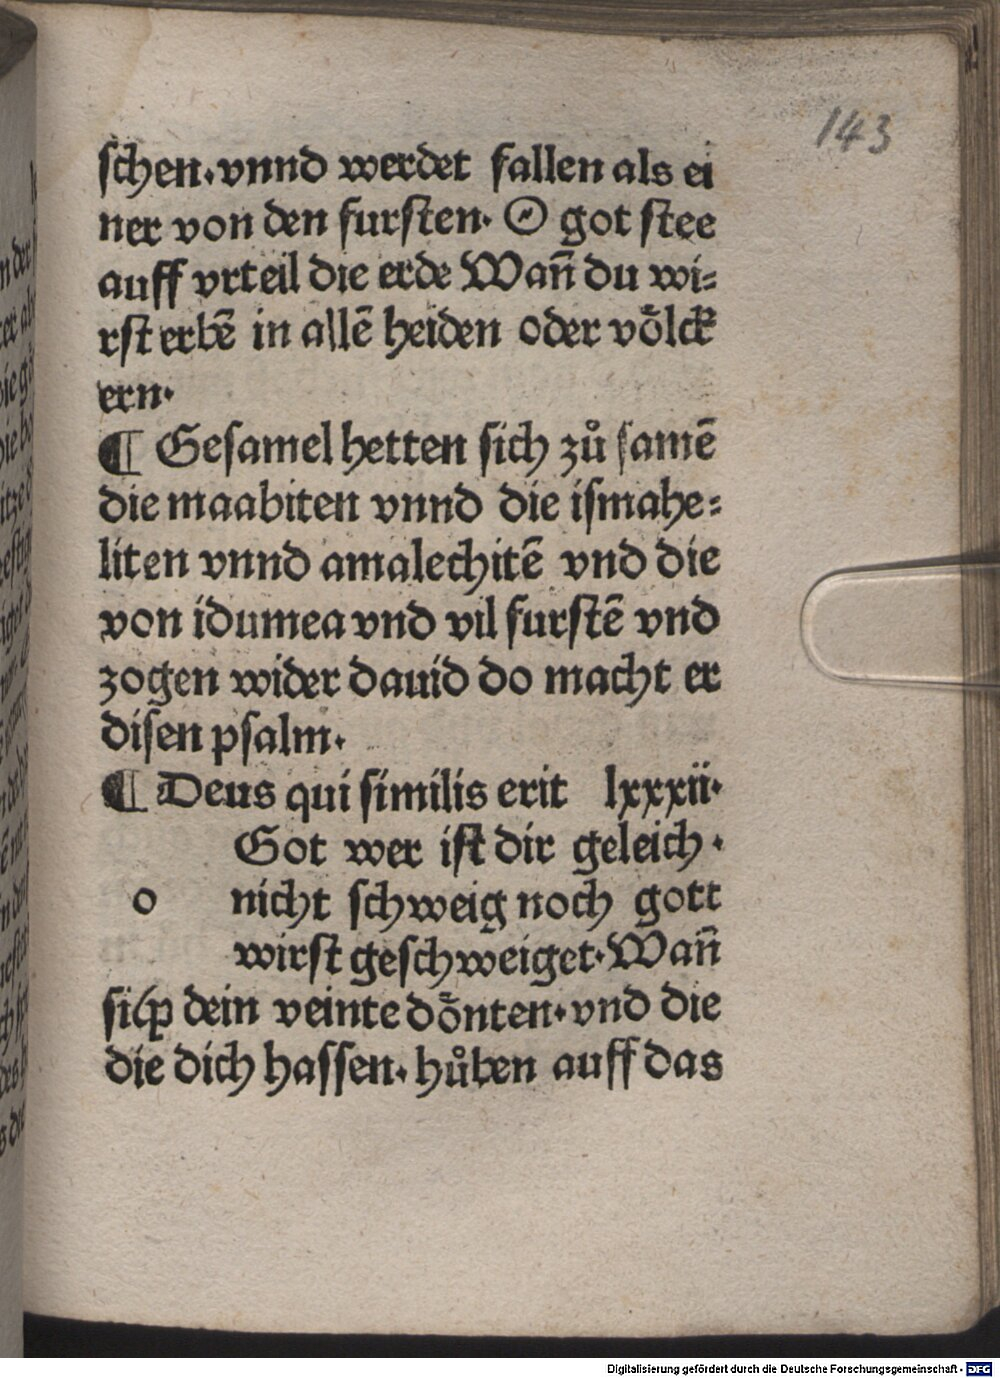 143
ſchen·vnnd werdet fallen als ei
ner von den furſten· O got ſtee
auff vrteil die erde Wañ du wi⸗
rſt erbẽ in allẽ heiden oder voͤlck
ern·
¶ Geſamel hetten ſich zů ſamẽ
die maabiten vnnd die iſmahe⸗
liten vnnd amalechitẽ vnd die
von idumea vnd vil furſtẽ vnd
zogen wider dauid do macht er
diſen pſalm·
¶ Deus qui ſimilis erit lxxxii·
Got wer iſt dir geleich·
o nicht ſchweig noch gott
wirſt geſchweiget·Wañ
dein veinte doͤnten·vnd die
die dich haſſen·hůben auff das
Digitalisierung gefördert durch die Deutsche Forschungsgemeinschaft - DFG